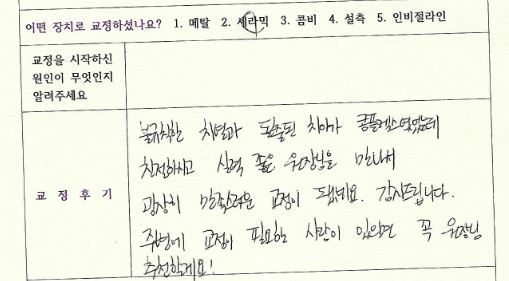 어떤 장치로 교정하셨나요? 1. 메탈 2. 세라믹 3. 콤비 4. 설측 5. 인비절라인
교정을 시작하신
원인이 무엇인지
알려주세요
교 정 후 기
불규칙한 치열과 돌출된 치아가 콤플렉스였었는데
친절하시고 실력 좋은 원장님을 만나서
굉장히 만족스러운 교정이 됐네요. 감사드립니다.
주변에 교정이 필요한 사람이 있으면 꼭 원장님
추천할게요!